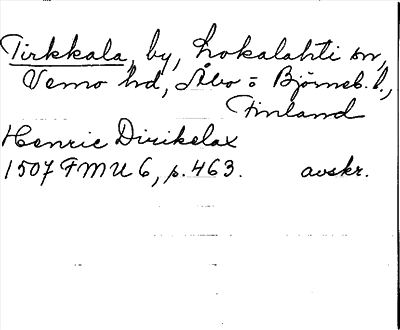 Tirkkala, by, Lokalahti sn,
Vemo hd, Åbo = Björneb. l.,
Finland
Henric Dirikelax
1507 FMU 6, p. 463. avskr.